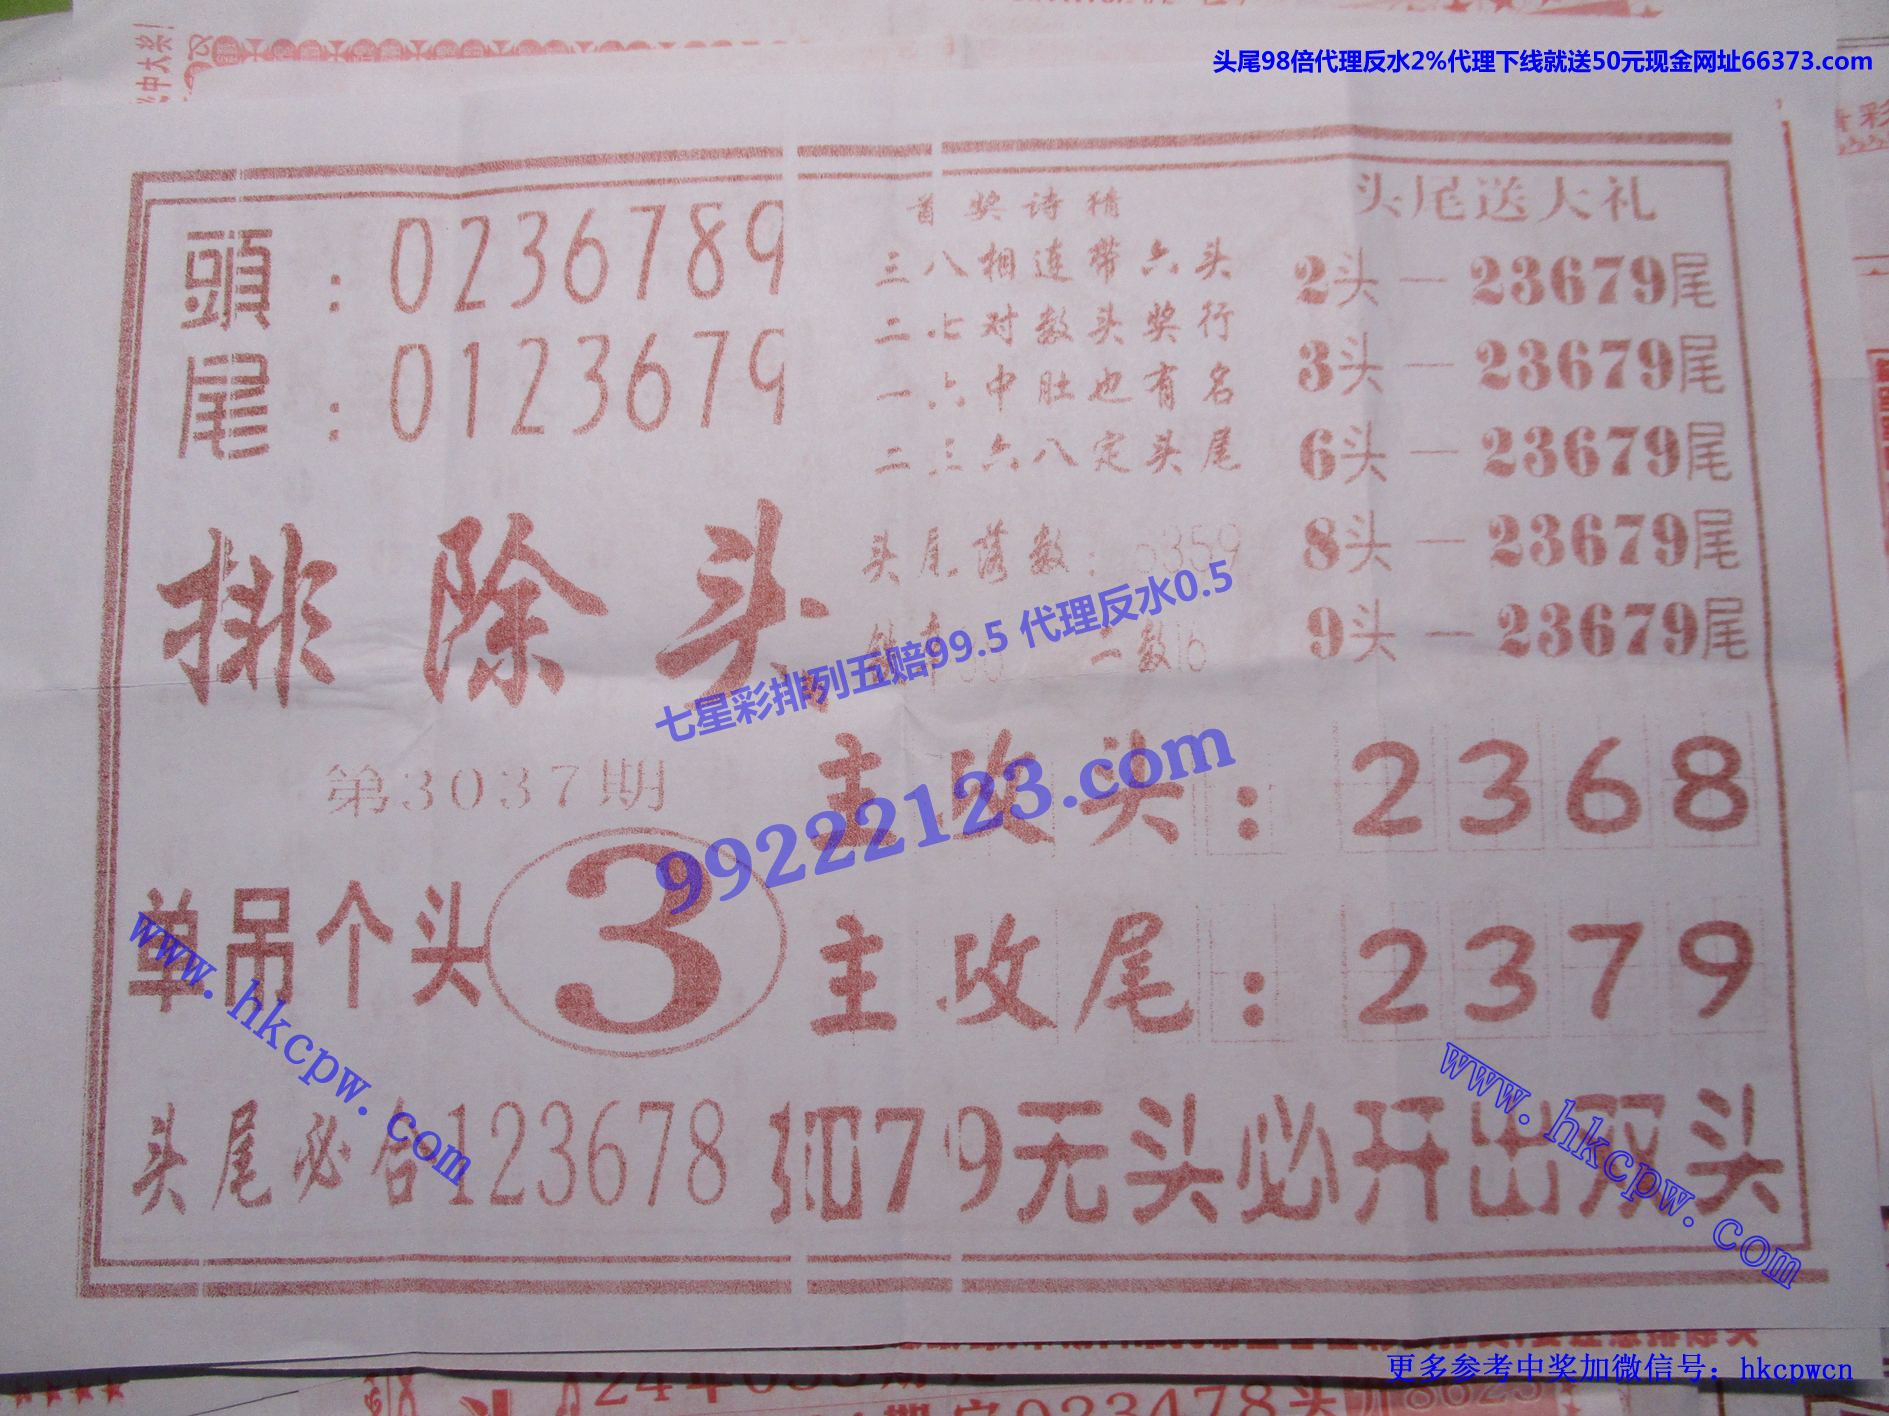 头尾98倍代理反水2%代理下线就送50元现金网址66373.com
中大奖!
頭：0236789
尾：0123679
首奖诗猜
三八相连带六头
二七对数头奖行
一六中肚也有名
二三六八定头尾
头尾送大礼
2头－23679尾
3头－23679尾
6头－23679尾
8头－23679尾
9头－23679尾
排除头
头尾落数：0359
一数16
七星彩排列五赔99.5 代理反水0.5
99222123.com
第3037期
主攻头：2368
单吊个头3
主攻尾：2379
www.hkcpw.com
www.hkcpw.com
头尾必合123678 扣79无头必开出双头
更多参考中奖加微信号：hkcpwcn
023478头